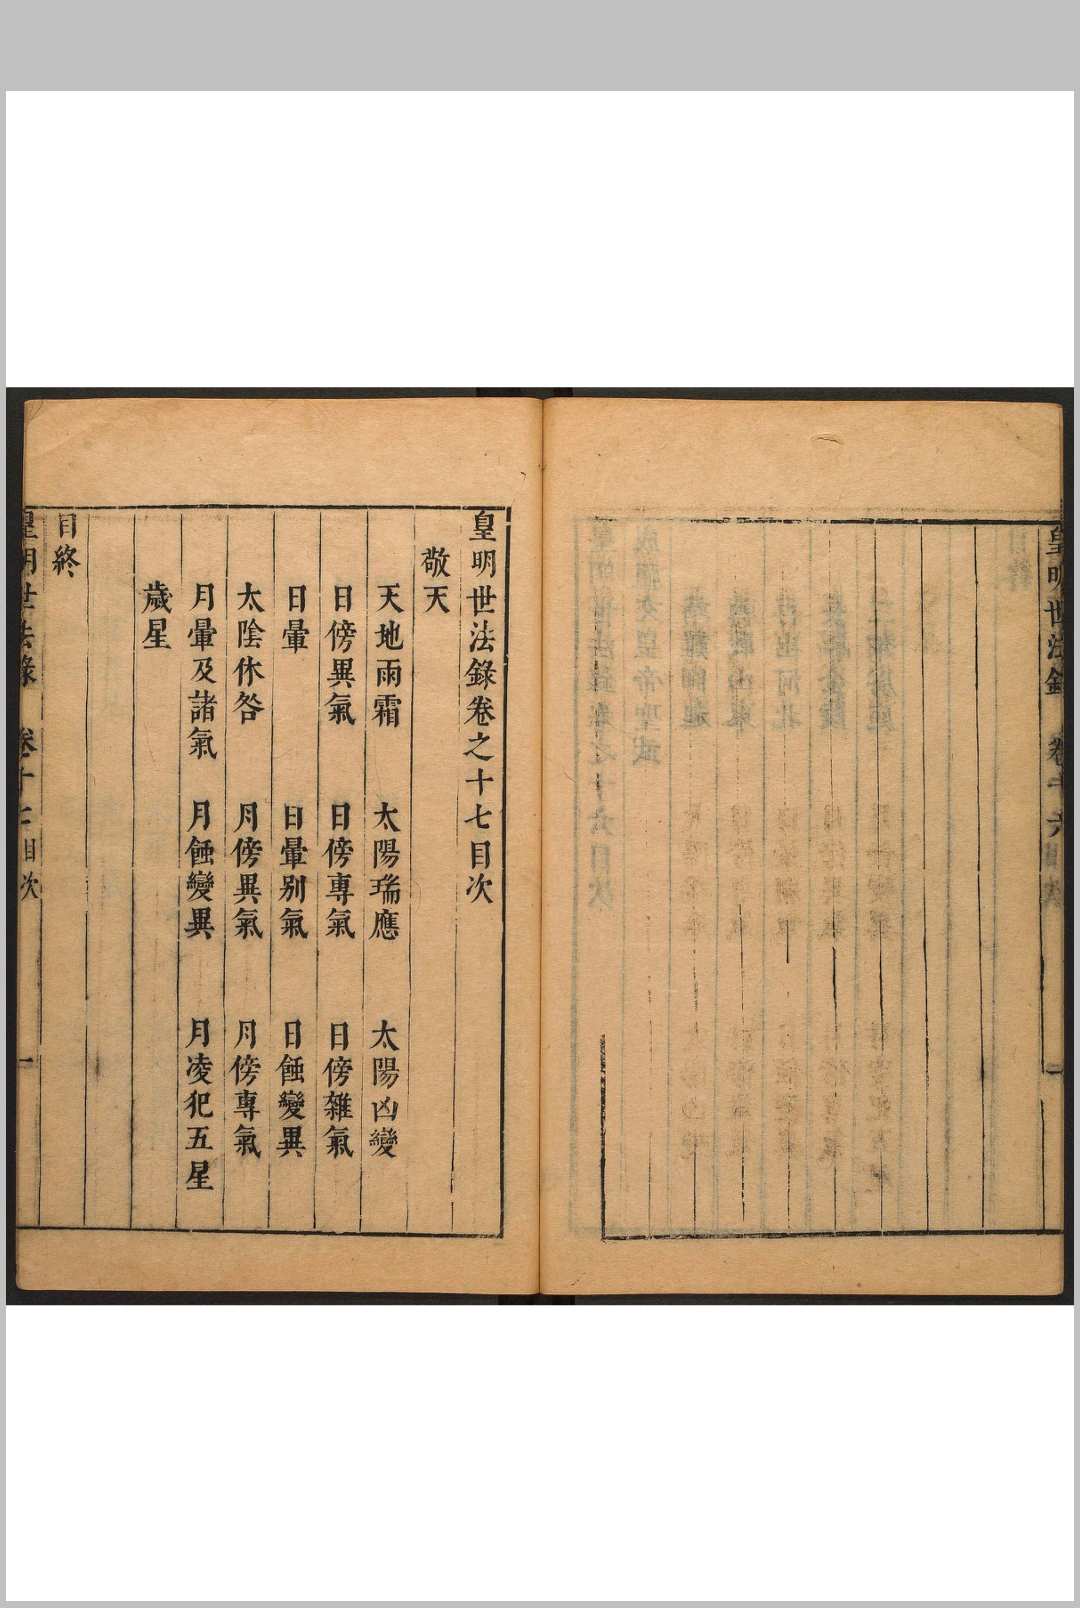 皇明世法錄 卷十六目次 一
皇明世法錄卷之十七目次
敬天
天地雨霜 太陽瑞應 太陽凶變
日傍異氣 日傍專氣 日傍雜氣
日暈 日暈別氣 日蝕變異
太陰休咎 月傍異氣 月傍專氣
月暈及諸氣 月蝕變異 月凌犯五星
歲星
目終
皇明世法錄 卷十七目次 一